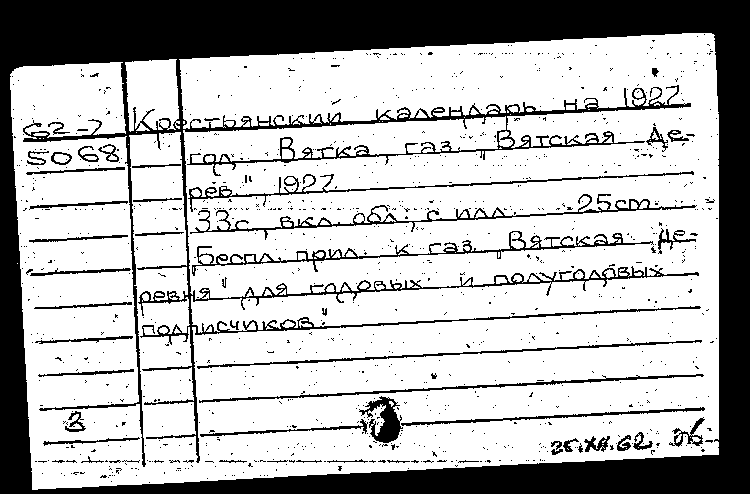 62-7 Крестьянский календарь на 1927
5068 год. Вятка, газ. „Вятская Де-
рев.", 1927.
33с., вкл. обл.; с илл. 25cm.
„Беспл. прил. к газ. „Вятская Де-
ревня" для годовых и полугодовых
подписчиков."
3
25.XII.62.